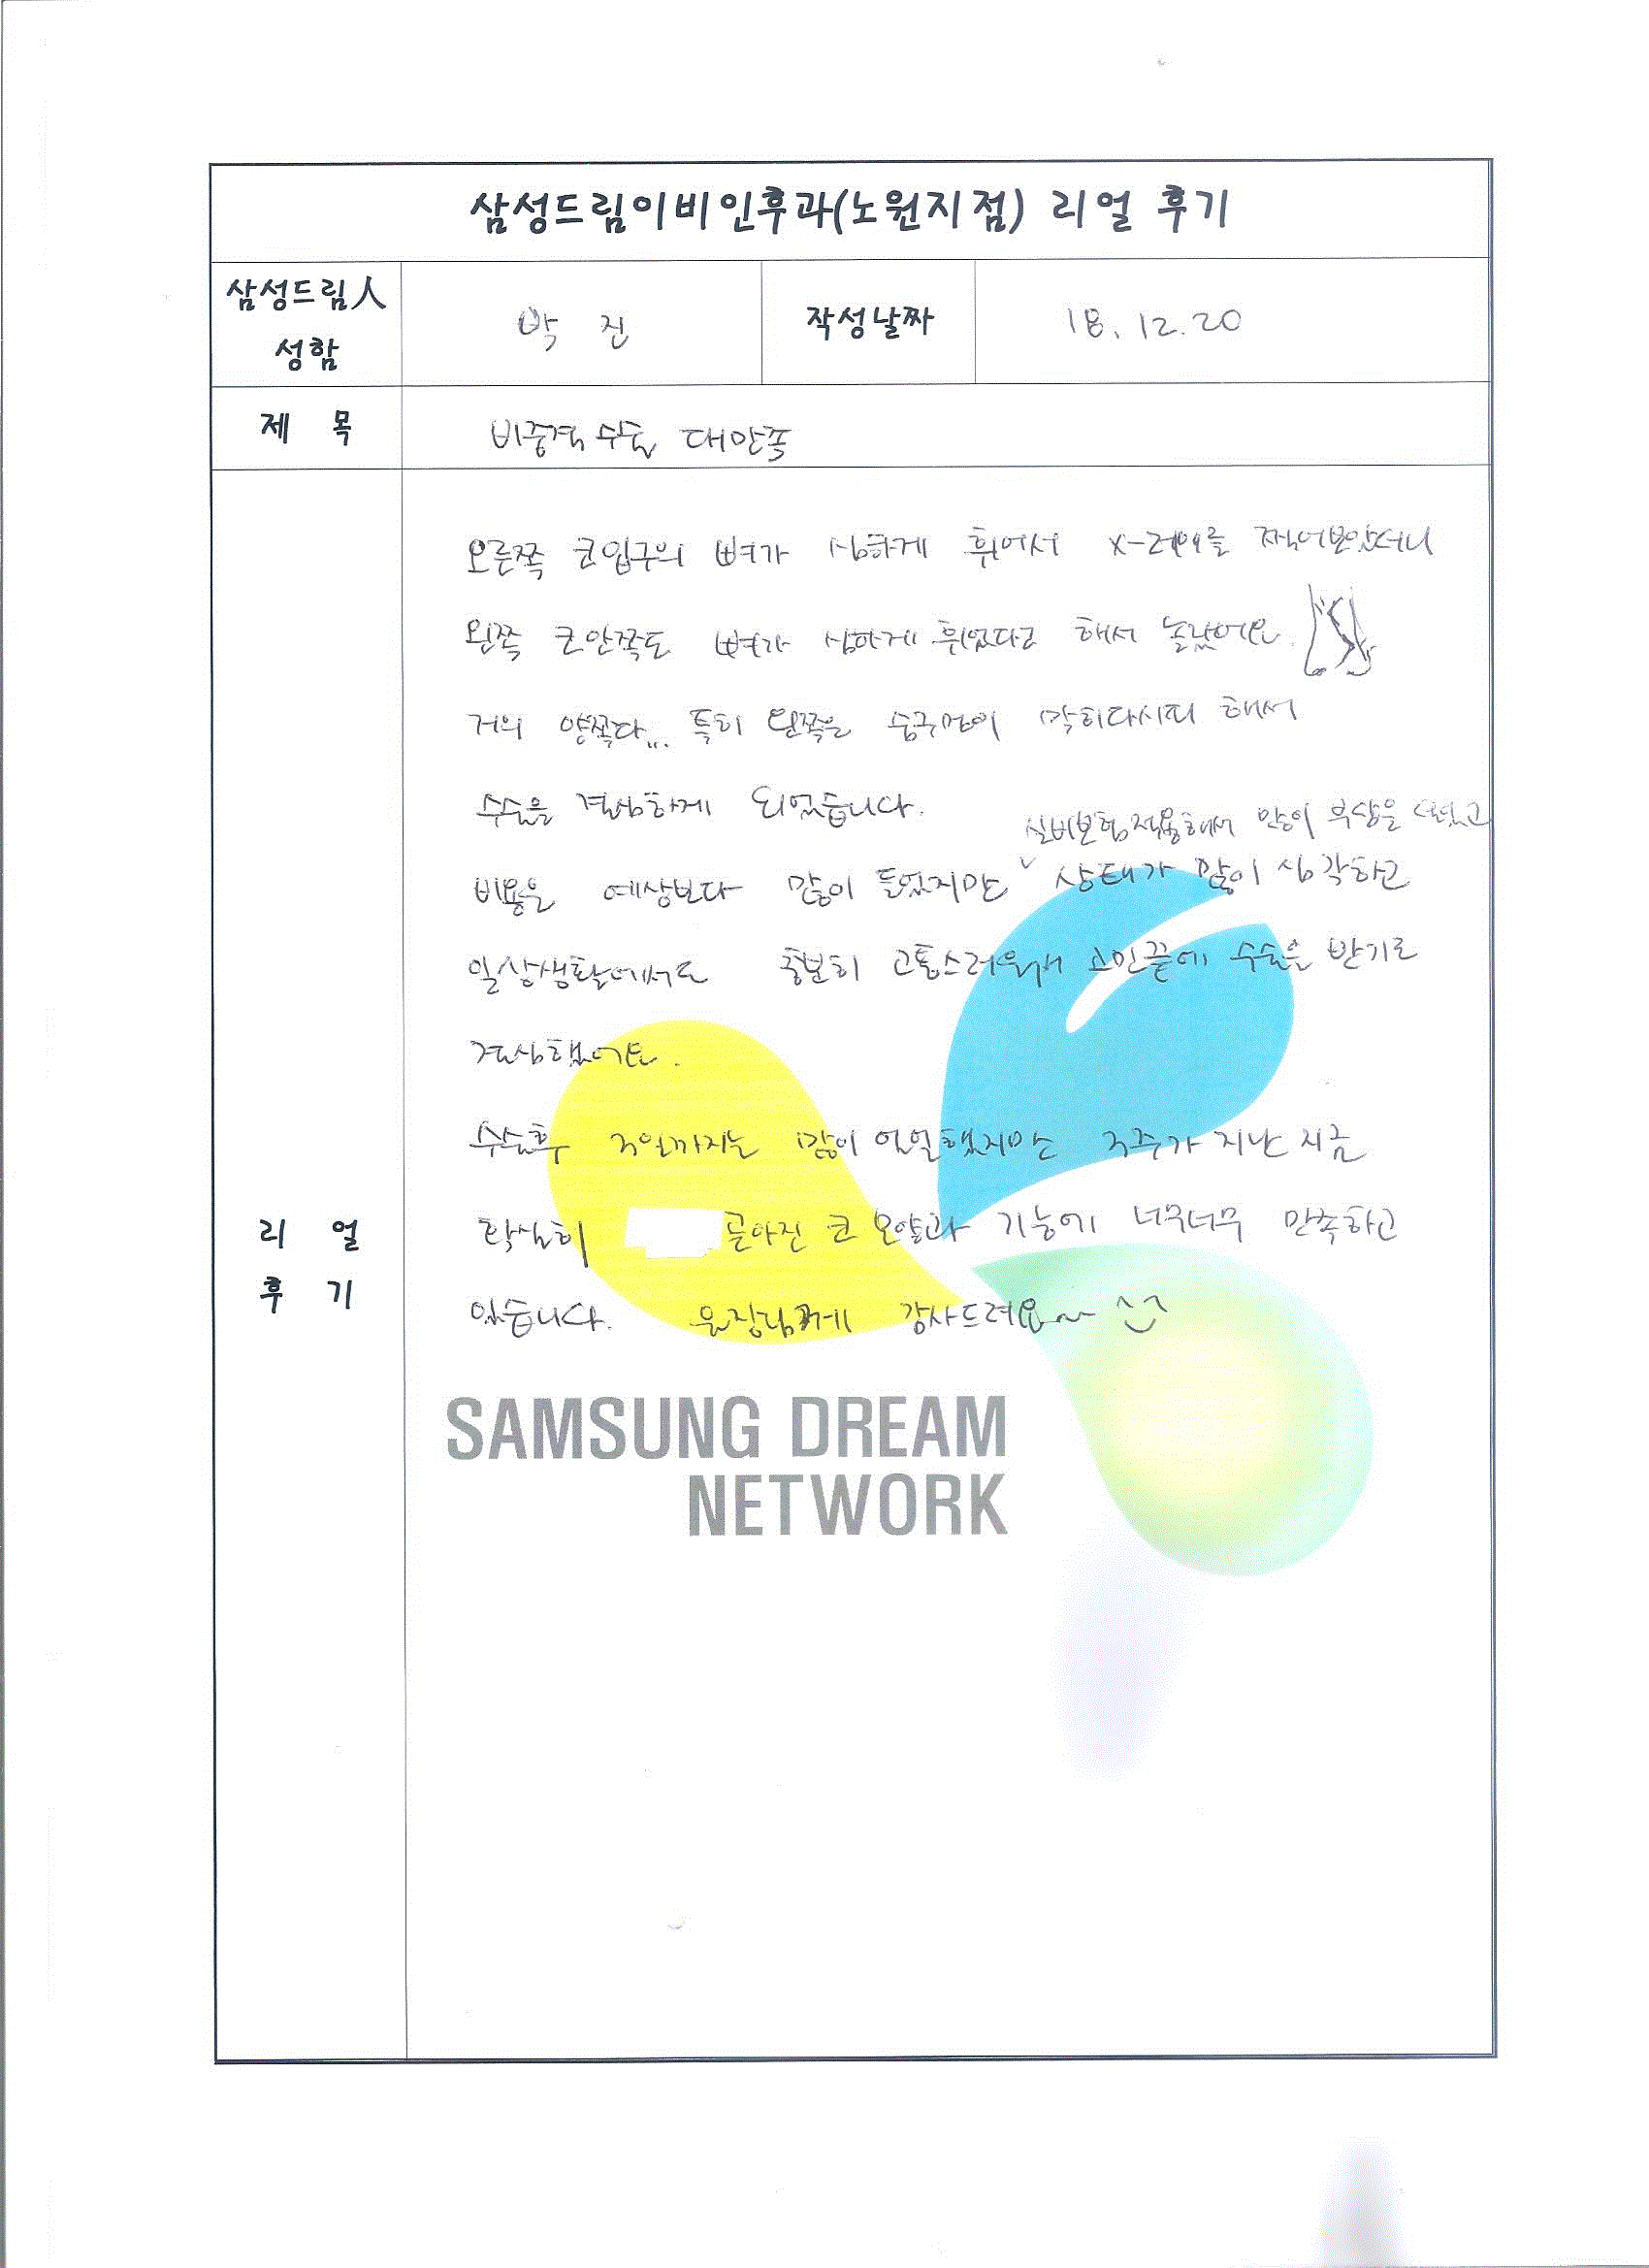 삼성드림이비인후과(노원지점) 리얼 후기
삼성드림人 성함
박 진
작성날짜
18. 12. 20
제 목
비중격수술 대만족
리 얼 후 기
오른쪽 코입구의 뼈가 심하게 휘어서 X-레이를 찍어보았더니
왼쪽 코안쪽도 뼈가 심하게 휘었다고 해서 놀랐어요.
거의 양쪽다... 특히 왼쪽은 숨구멍이 막히다시피 해서
수술을 결심하게 되었습니다.
실비보험적용해서 많이 부담을 덜었고
비용은 예상보다 많이 들었지만 ∨ 상태가 많이 심각하고
일상생활에서도 충분히 고통스러워서 고민끝에 수술을 받기로
결심했어요.
수술후 3일까지는 많이 얼얼했지만 3주가 지난 지금
확실히 곧아진 코 모양과 기능에 너무너무 만족하고
있습니다. 원장님께 감사드려요~~
SAMSUNG DREAM
NETWORK